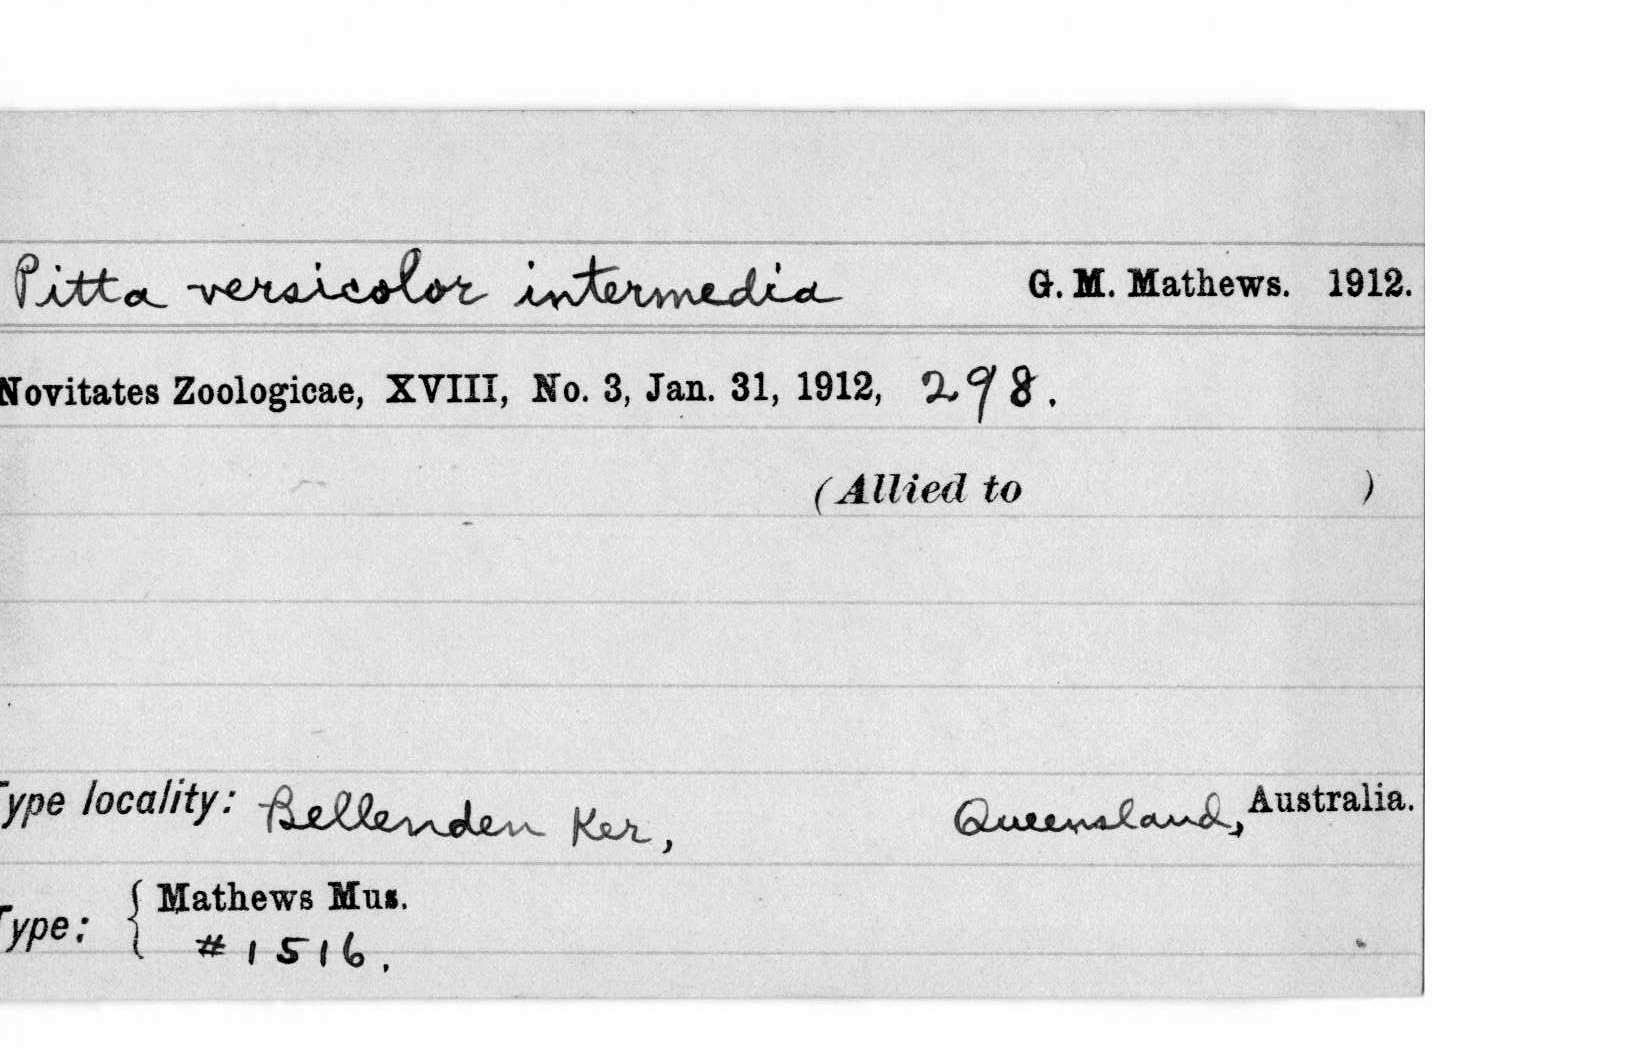 Pitta versicolor intermedia G. M. Mathews. 1912.
Novitates Zoologicae, XVIII, No. 3, Jan. 31, 1912, 298.
(Allied to )
Type locality: Bellenden Ker, Queensland, Australia.
Type: { Mathews Mus.
#1516.